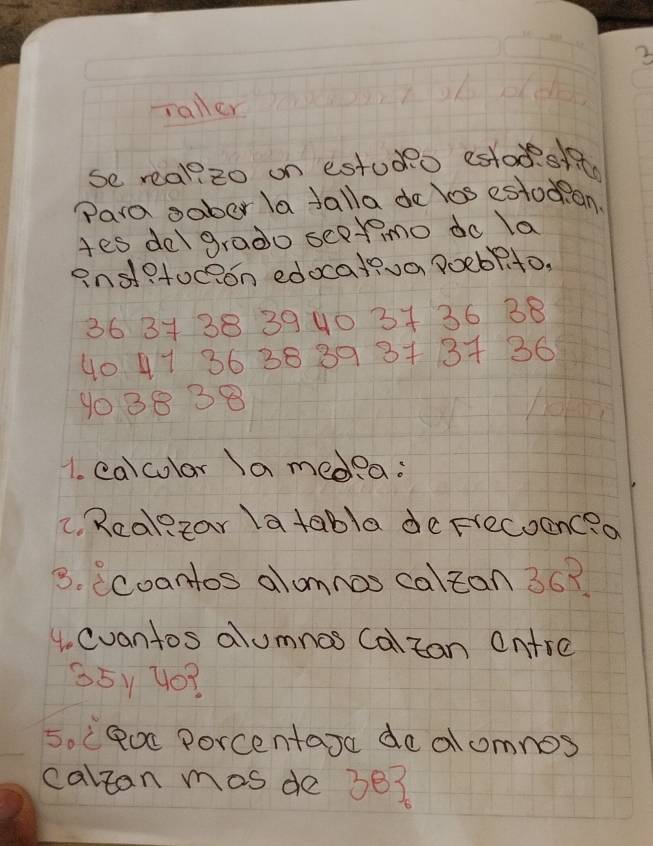 Taller
se realizo un estudio estadistico
Para saber la talla de los estudian.
tes del grado septimo de la
institucion educativa Pueblito.
36 37 38 39 40 37 36 38
40 41 36 38 39 37 37 36
40 38 38
1. calcular la media:
2. Realizar la tabla de Frecuencia
3. ¿cuantos alumnos calzan 36?
4. cuantos alumnos calzan entre
35 y 40?
5. ¿Que Porcentaje de alumnos
calzan mas de 38?